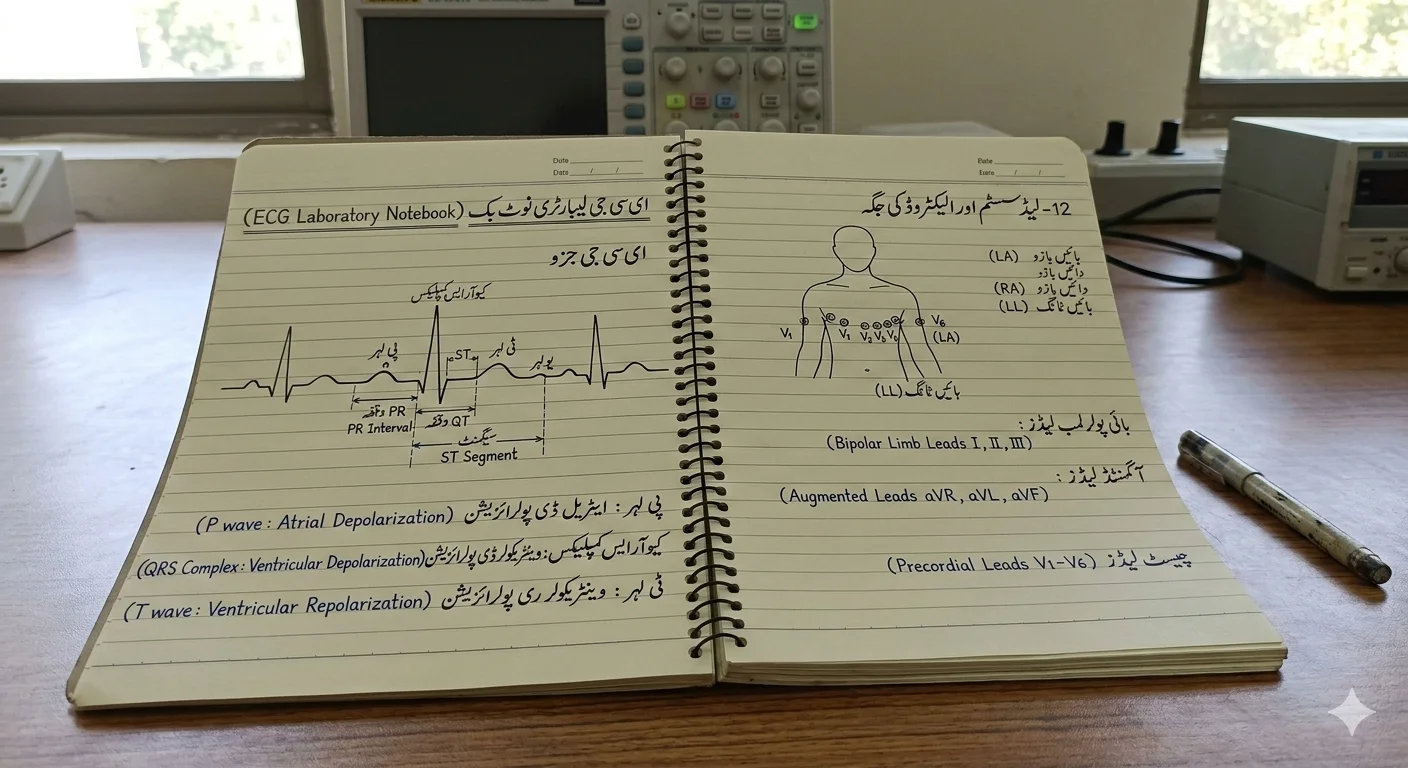 Date
Date / /
ای سی جی لیبارٹری نوٹ بک (ECG Laboratory Notebook)
ای سی جی جزو
کیو آر ایس کمپلیکس
پی لہر
ST
ٹی لہر
یو لہر
PR وقفہ
PR Interval
QT وقفہ
سیگنٹ
ST Segment
پی لہر : ایٹریل ڈی پولرائزیشن (P wave : Atrial Depolarization)
کیو آر ایس کمپلیکس: وینٹریکولر ڈی پولرائزیشن (QRS Complex: Ventricular Depolarization)
ٹی لہر : وینٹریکولر ری پولرائزیشن (T wave : Ventricular Repolarization)
12- لیڈ سسٹم اور الیکٹروڈ کی جگہ
بائیں بازو (LA)
دائیں باڈو
دائیں بازو (RA)
بائیں ٹانگ (LL)
V1
V1 V2
V6
(LA)
بائیں ٹانگ (LL)
بائی پولر لمب لیڈز :
(Bipolar Limb Leads I, II, III)
آگمنٹڈ لیڈز :
(Augmented Leads aVR, aVL, aVF)
چیسٹ لیڈز (Precordial Leads V1-V6)